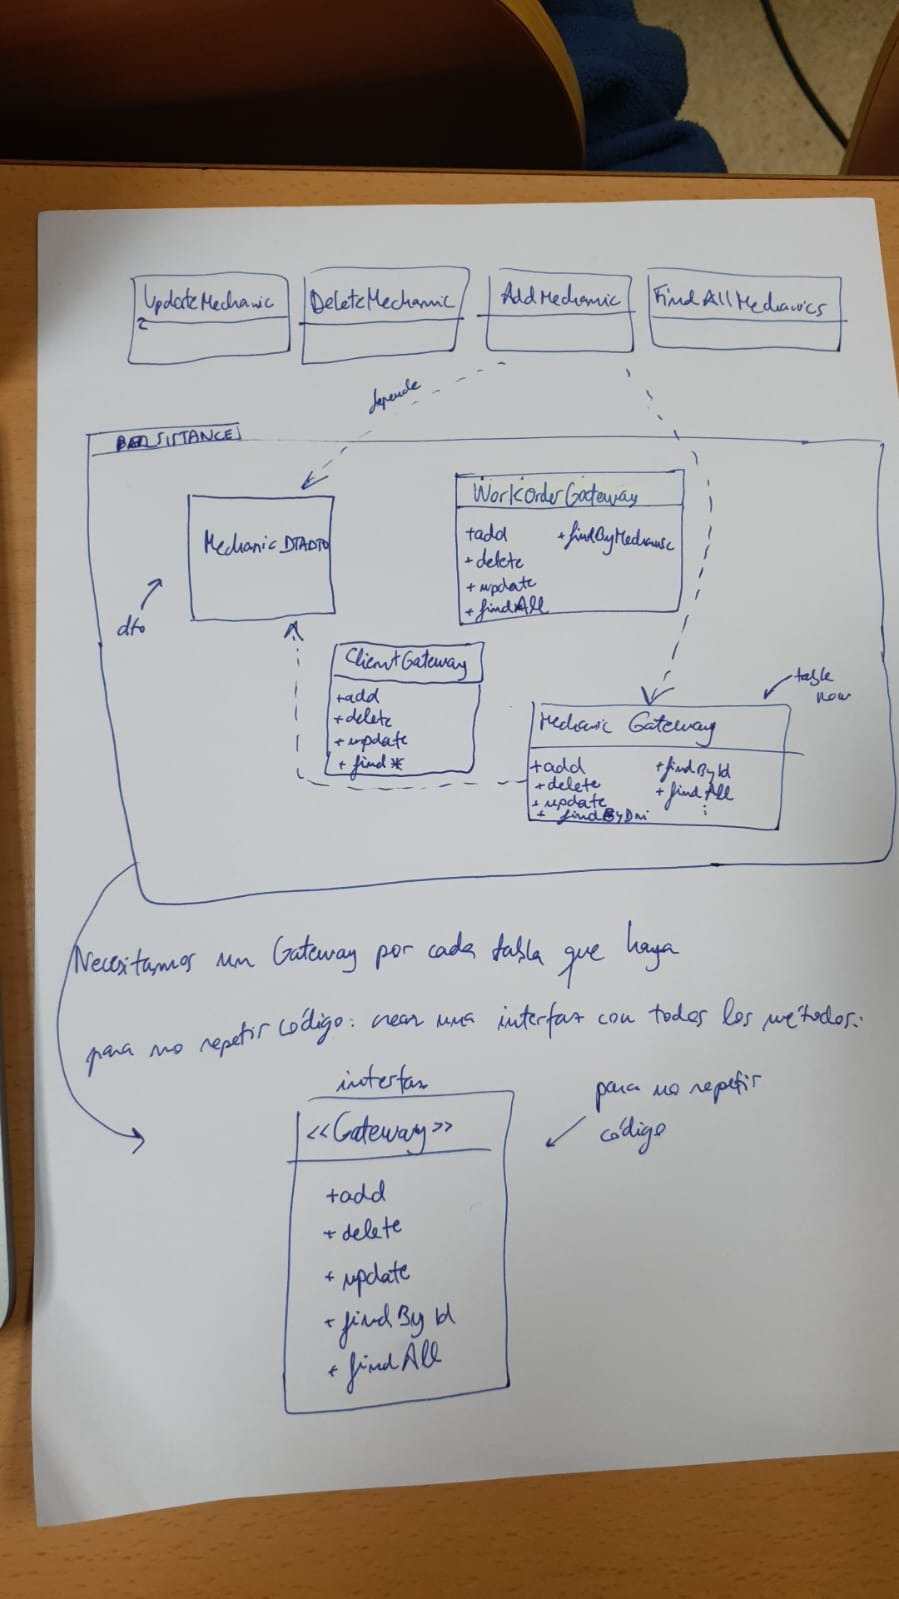 UpdateMechanic
DeleteMechanic
AddMechanic
FindAllMechanics
depende
PERSISTANCE
MechanicDTADTO
dto
WorkOrderGateway
+add
+delete
+update
+findAll
+findByMechanic
ClientGateway
+add
+delete
+update
+find*
table
Mechanic Gateway
+add
+delete
+update
+findByDni
+findById
+findAll
⋮
Necesitamos un Gateway por cada tabla que haya
para no repetir código: crear una interfaz con todos los métodos:
interfaz
<<Gateway>>
+add
+delete
+update
+findById
+findAll
para no repetir
código